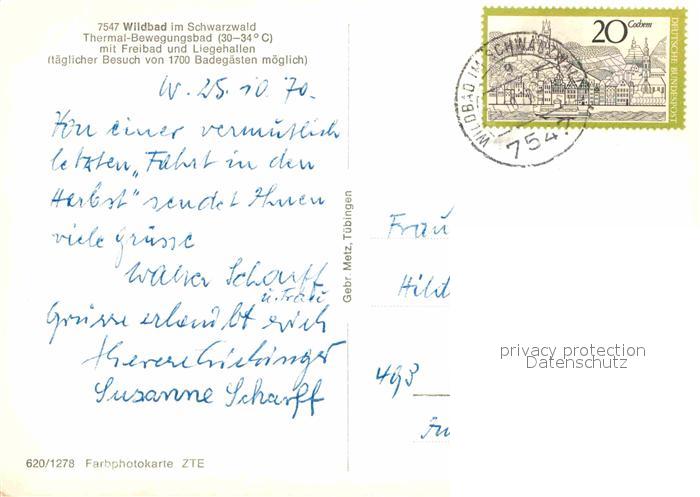 7547 Wildbad im Schwarzwald
Thermal-Bewegungsbad (30—34° C)
mit Freibad und Liegehallen
(täglicher Besuch von 1700 Badegästen möglich)
W. 25.10.70.
Von einer vermutlich
letzten "Fahrt in den
Herbst" sendet Ihnen
viele Grüsse
Walter Scharff
u. Frau
Grüsse erlaubt sich
Susanne Scharff
620/1278 Farbphotokarte ZTE
Gebr. Metz, Tübingen
20 Cochem
DEUTSCHE BUNDESPOST
WILDBAD IM SCHWARZWALD
7547
Frau
Hild
493
privacy protection
Datenschutz